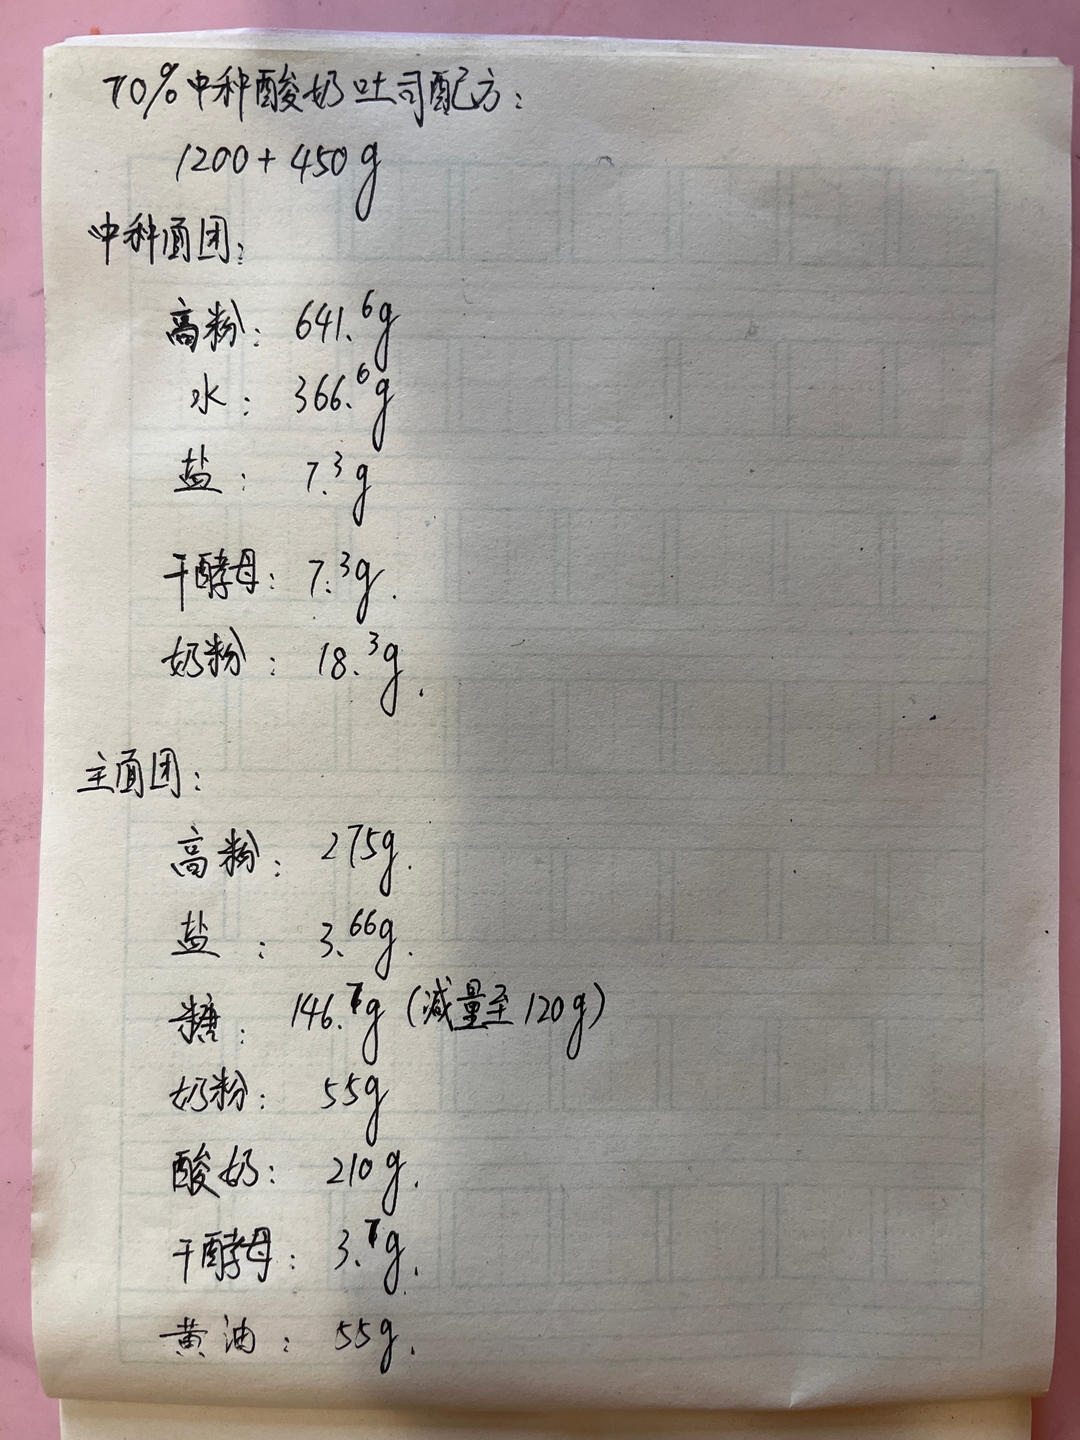 70%中种酸奶吐司配方:
1200+450g
中种面团:
高粉: 641.6g
水: 366.6g
盐: 7.3g
干酵母: 7.3g.
奶粉: 18.3g.
主面团:
高粉: 275g.
盐: 3.66g.
糖: 146.7g (减量至120g)
奶粉: 55g
酸奶: 210g.
干酵母: 3.7g.
黄油: 55g.